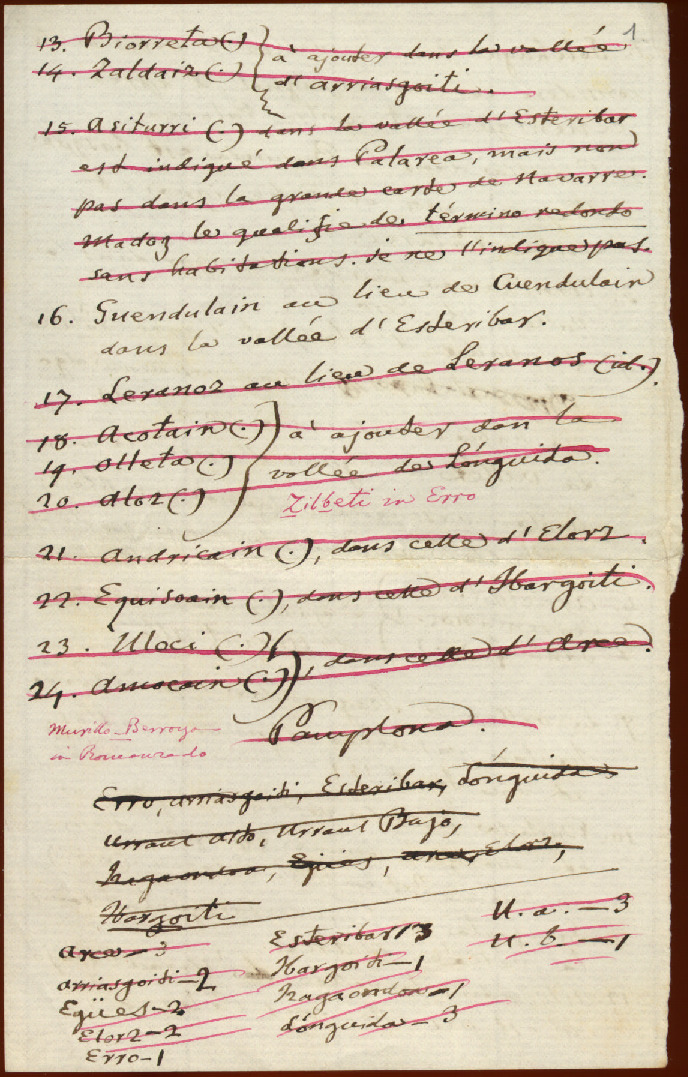 1
13. Biorreta (.) à ajouter dans la vallée
14. Zaldaiz (.) d'arriasgoiti.
15. Asiturri (.) dans la vallée d'Esteribar
est indiqué dans Patarea, mais non
pas dans la grande carte de Navarre.
Madoz le qualifie de término redondo
sans habitations. je ne l'indique pas.
16. Guendulain au lieu de Cuendulain
dans la vallée d'Esteribar.
17. Leranoz au lieu de Leranos (id.).
18. Acotain (.) à ajouter dan la
19. Olleta (.) vallée de Lónguida.
20. Aloz (.)
Zilbeti in Erro
21. Andricain (.), dans cette d'Elorz.
22. Equisoain (.), dans cette d'Ibargoiti.
23. Uloci (.)
24. Amocain (.), dans cette d'Arce.
Murillo-Berroya
in Romanzado
Pamplona.
Erro, arriasgoiti, Esteribar, Lónguida
Urraul alto, Urraul Bajo,
Izagaondoa, Egües, arce, Elorz,
Ibargoiti
arce - 3
arriasgoiti - 2
Egües - 2
Elorz - 2
Erro - 1
Esteribar 3
Ibargoiti - 1
Izagaondoa - 1
Lónguida - 3
U. a. - 3
U. b. - 1